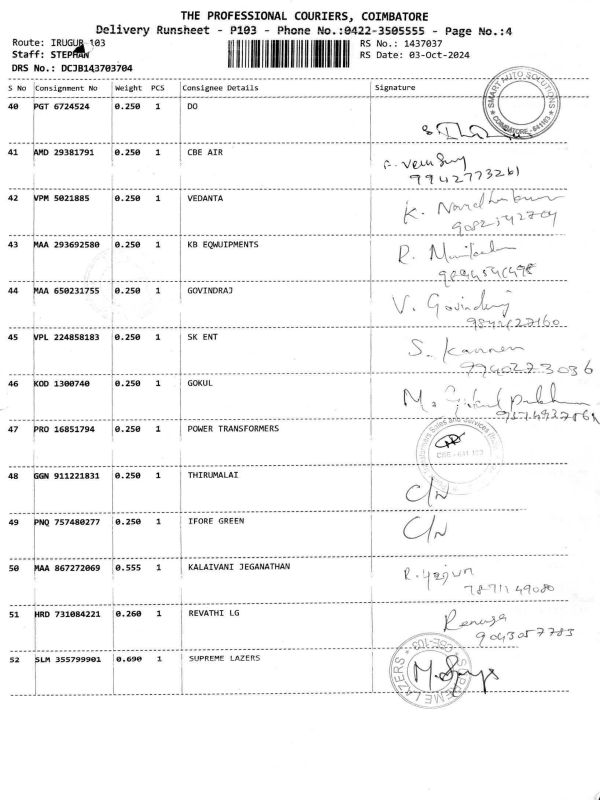 THE PROFESSIONAL COURIERS, COIMBATORE
Delivery Runsheet - P103 - Phone No.:0422-3505555 - Page No.:4
Route: IRUGUR-103
RS No.: 1437037
Staff: STEPHAN
RS Date: 03-Oct-2024
DRS No.: DCJB143703704
S No Consignment No Weight PCS Consignee Details Signature
40 PGT 6724524 0.250 1 DO
SMART AUTO SOLUTIONS
COIMBATORE - 641103
41 AMD 29381791 0.250 1 CBE AIR
9942773261
42 VPM 5021885 0.250 1 VEDANTA
K.
43 MAA 293692580 0.250 1 KB EQWUIPMENTS
R.
44 MAA 650231755 0.250 1 GOVINDRAJ
V. Govindraj
45 VPL 224858183 0.250 1 SK ENT
S. Kannan
9940273036
46 KOD 1300740 0.250 1 GOKUL
47 PRO 16851794 0.250 1 POWER TRANSFORMERS
Transformers Sales and Services
CBE - 641 103
48 GGN 911221831 0.250 1 THIRUMALAI
C/N
49 PNQ 757480277 0.250 1 IFORE GREEN
C/N
50 MAA 867272069 0.555 1 KALAIVANI JEGANATHAN
R.
7871149080
51 HRD 731084221 0.260 1 REVATHI LG
Renuga
9043057783
52 SLM 355799901 0.690 1 SUPREME LAZERS
SUPREME LAZERS
CBE-103